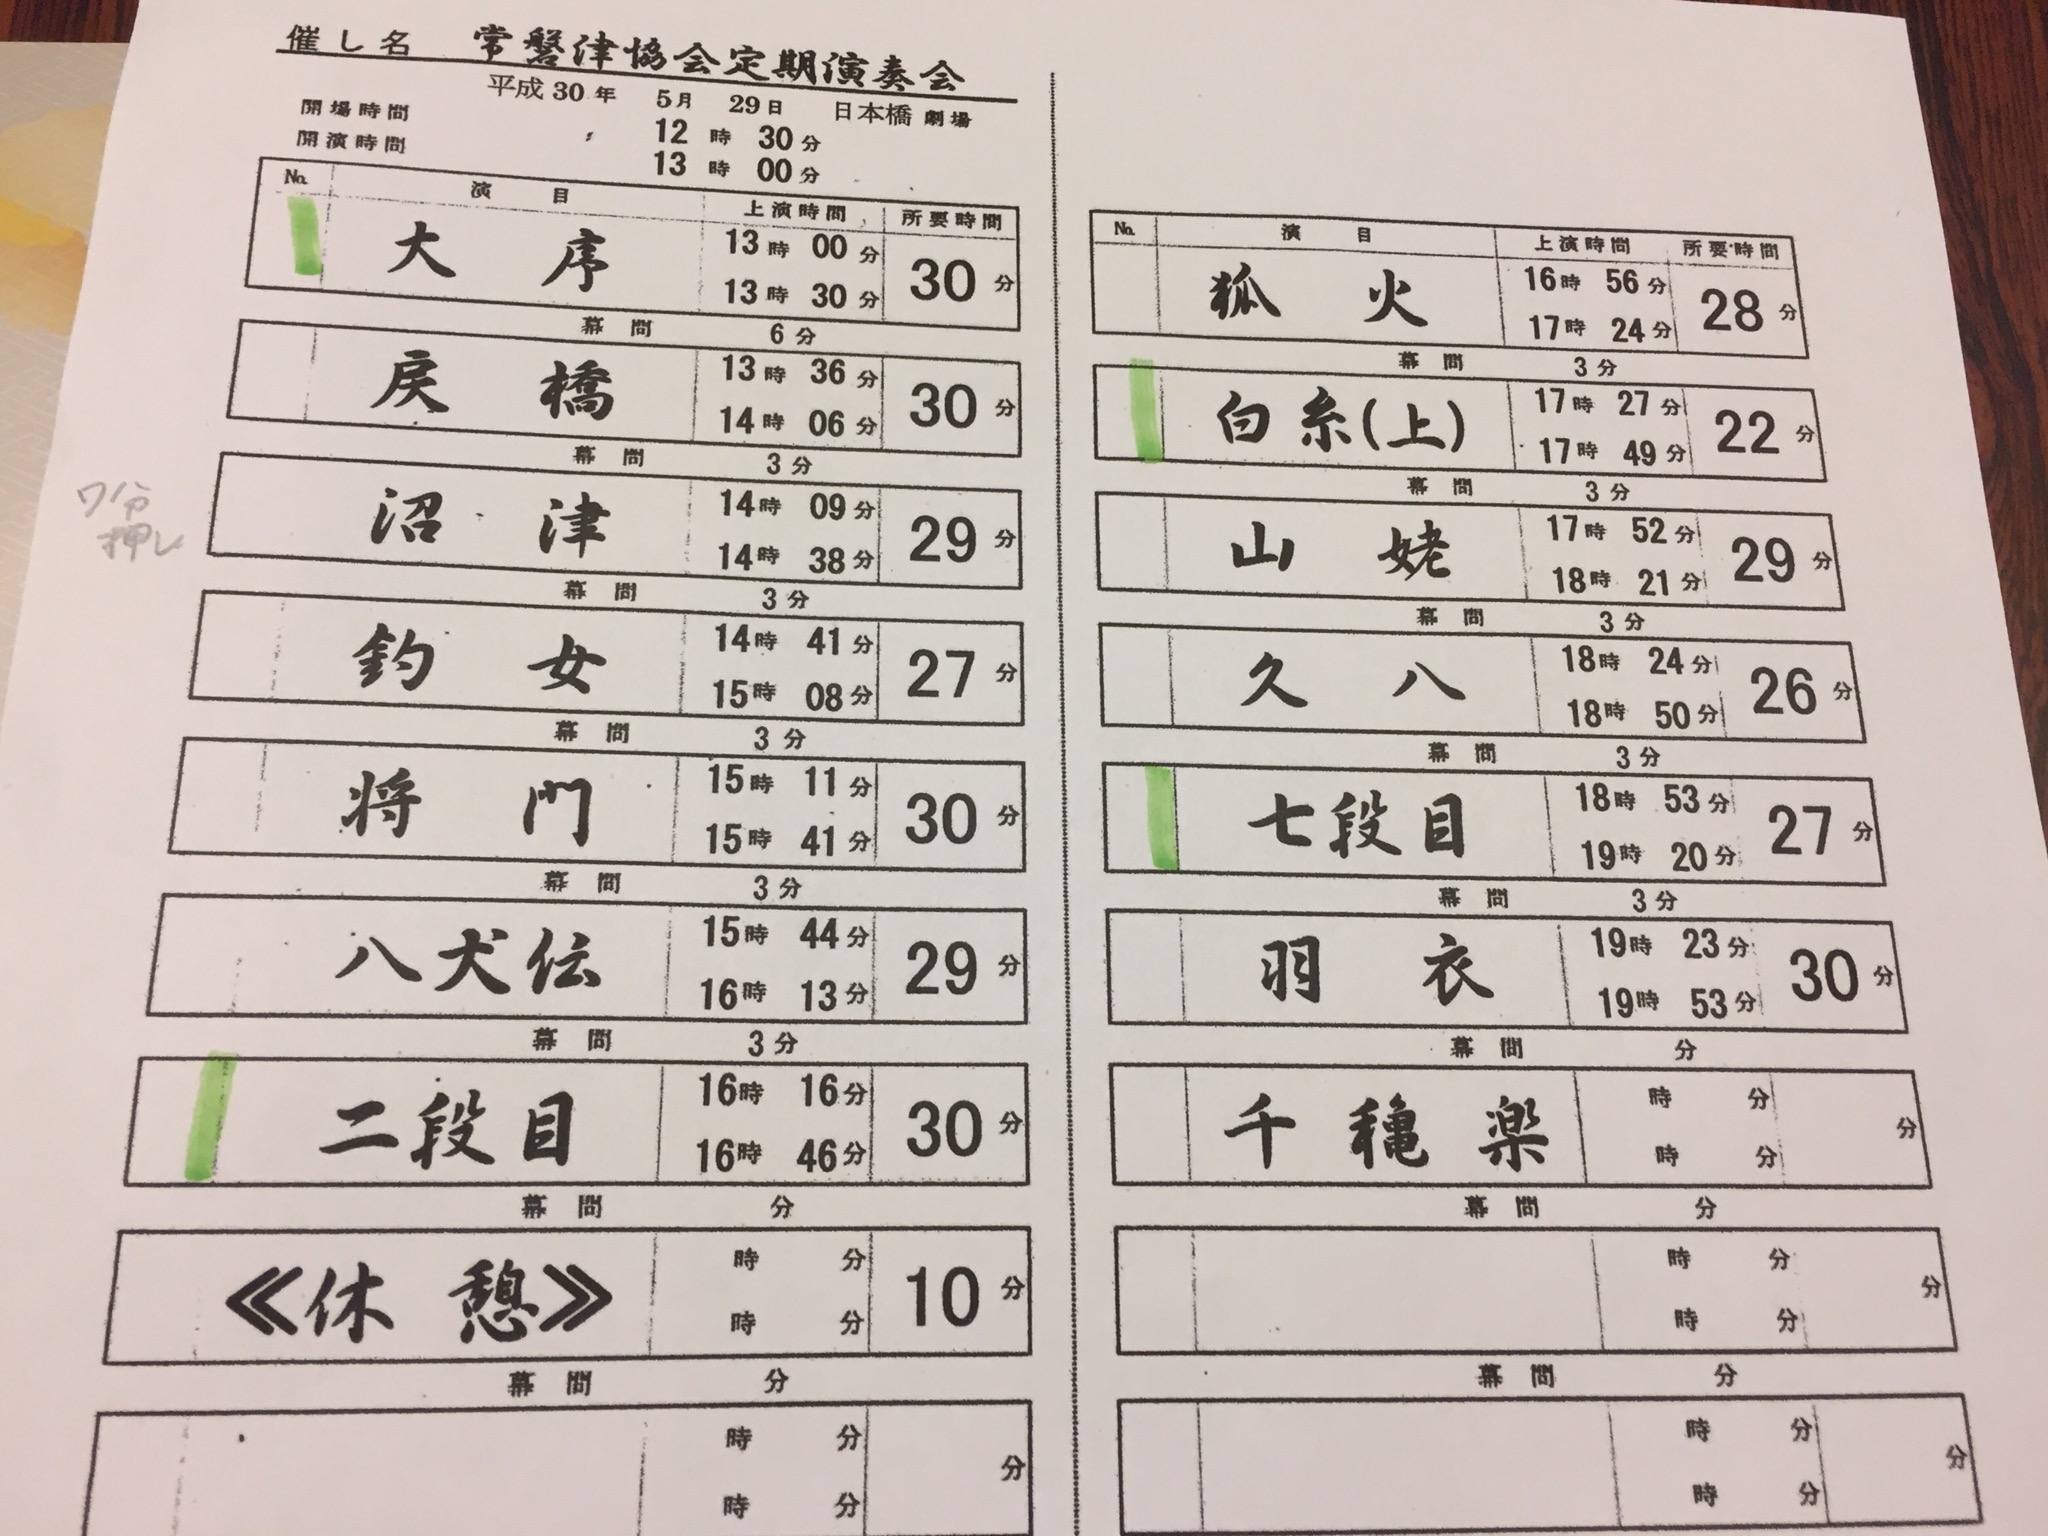 催し名 常磐津協会定期演奏会
平成30年 5月 29日 日本橋劇場
開場時間 〃 12時30分
開演時間 13時00分
No. 演目 上演時間 所要時間
大序 13時00分 13時30分 30分
幕間 6分
戻橋 13時36分 14時06分 30分
幕間 3分
沼津 14時09分 14時38分 29分
7分
押し
幕間 3分
釣女 14時41分 15時08分 27分
幕間 3分
将門 15時11分 15時41分 30分
幕間 3分
八犬伝 15時44分 16時13分 29分
幕間 3分
二段目 16時16分 16時46分 30分
幕間 分
≪休憩≫ 時 分 時 分 10分
幕間 分
時 分 時 分 分
No. 演目 上演時間 所要時間
狐火 16時56分 17時24分 28分
幕間 3分
白糸(上) 17時27分 17時49分 22分
幕間 3分
山姥 17時52分 18時21分 29分
幕間 3分
久八 18時24分 18時50分 26分
幕間 3分
七段目 18時53分 19時20分 27分
幕間 3分
羽衣 19時23分 19時53分 30分
幕間 分
千穐楽 時 分 時 分 分
幕間 分
時 分 時 分 分
幕間 分
時 分 時 分 分